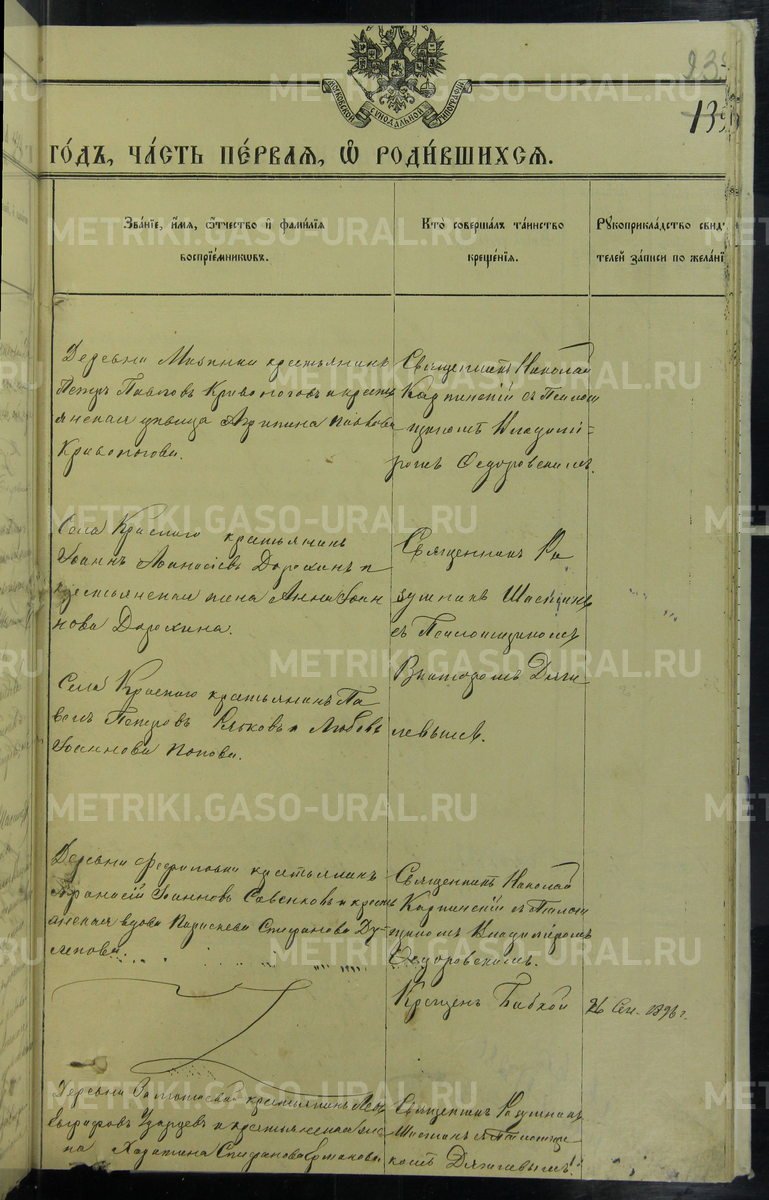 235
139
МОСКОВСКОЙ СѴНОДАЛЬНОЙ ТИПОГРАФІИ
ГО́ДЪ, ЧА́СТЬ ПЕ́РВАЯ, Ѡ РОДИ́ВШИХСЯ.
Зва́нїе, и́мя, ѻ҆́тчество и҆ фами́лїя
воспрїе́мникѡвъ.
Кто̀ соверша́лъ та́инство
креще́нїя.
Рꙋкоприкла́дство свид
телей за́писи по жела́нї
Деревни крестьянинъ
Петръ Павловъ Кривоноговъ и кресть
янская Агрипина Павлова
Кривоногова.
Священникъ Николай
Карпинскій съ Псалом
щикомъ Владимі=
ромъ Ѳедоровскимъ.
Села Краснаго крестьянинъ
Іоаннъ Дорохинъ и
крестьянская жена Анна Іоан
нова Дорохина.
Священникъ Ра
зумникъ
съ Псаломщикомъ
Викторомъ Дяги
левымъ.
Села Краснаго крестьянинъ Па
велъ Петровъ и Любовь
Іоаннова Попова.
Деревни крестьянинъ
Афанасій Іоанновъ Савенковъ и кресть
янская вдова Параскева Стефанова Ду-
лепова.
Священникъ Николай
Карпинскій съ Псалом
щикомъ Владиміромъ
Ѳедоровскимъ.
Крещенъ Бабкой
26 Сен. 1896 г.
Деревни крестьянинъ
Ударцевъ и крестьянская же
на Стефанова Ерманова
Священникъ Разумникъ
съ Псаломщи
комъ Дягилевымъ.
METRIKI.GASO-URAL.RU